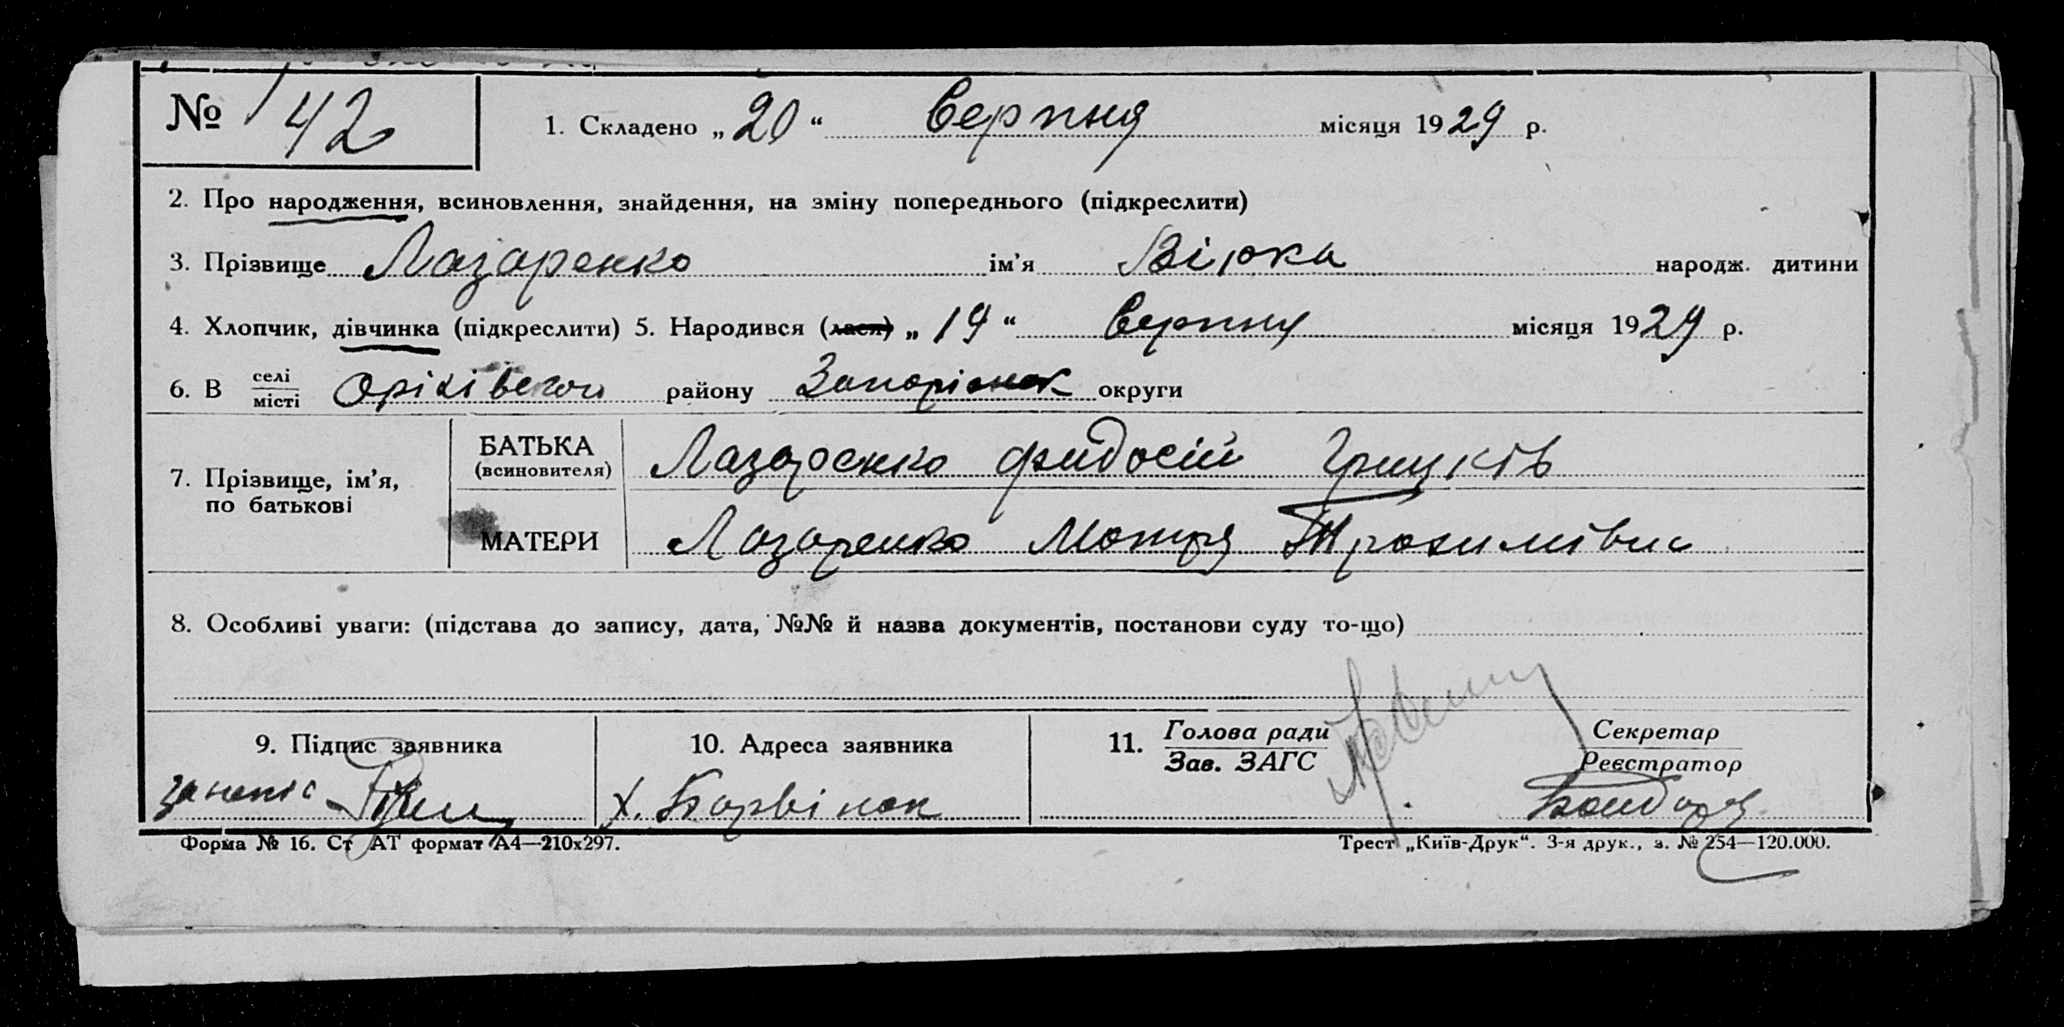 № 42 1. Складено „20“ Серпня місяця 1929 р.
2. Про народження, всиновлення, знайдення, на зміну попереднього (підкреслити)
3. Прізвище Лазаренко ім’я Вірка народж. дитини
4. Хлопчик, дівчинка (підкреслити) 5. Народився (лася) „19“ Серпня місяця 1929 р.
6. В селі місті Оріхівського району Запоріжжя округи
7. Прізвище, ім’я, по батькові
БАТЬКА (всиновителя) Лазаренко Фидосій Грицків
МАТЕРИ Лазаренко Мотря Трохимівна
8. Особливі уваги: (підстава до запису, дата, №№ й назва документів, постанови суду то-що)
9. Підпис заявника 10. Адреса заявника 11. Голова ради Зав. ЗАГС Секретар Реєстратор
х. Барвінок
Форма № 16. Ст АТ формат А4—210х297. Трест „Київ-Друк“. 3-я друк., з. № 254—120.000.